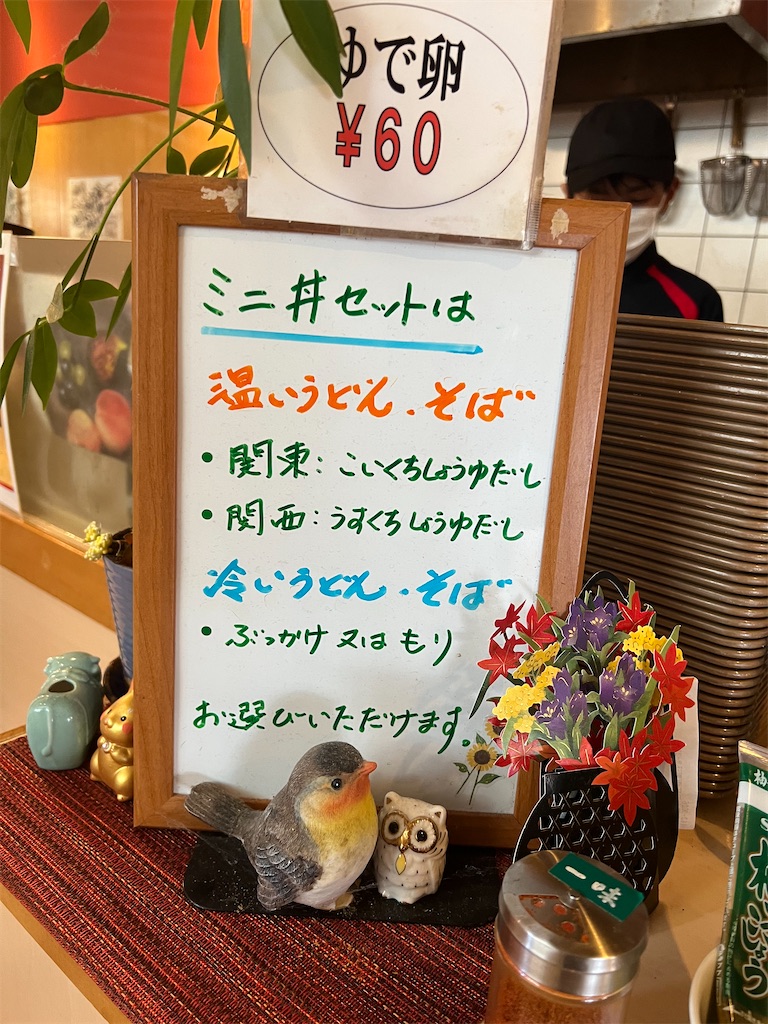 ゆで卵
¥60
ミニ丼セットは
温いうどん.そば
・関東:こいくちしょうゆだし
・関西:うすくちしょうゆだし
冷いうどん.そば
・ぶっかけ又はもり
お選びいただけます。
一味
梅